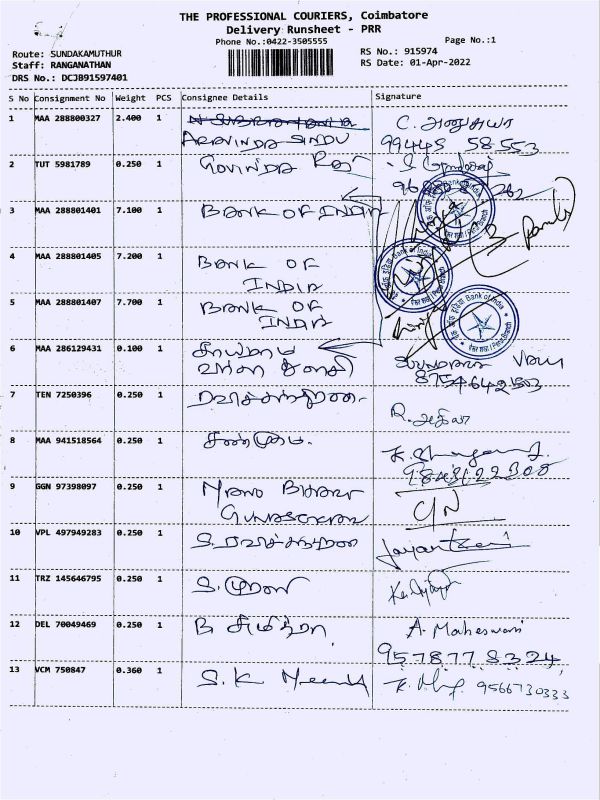 THE PROFESSIONAL COURIERS, Coimbatore
Delivery Runsheet - PRR
Phone No.:0422-3505555
Page No.:1
Route: SUNDAKAMUTHUR
RS No.: 915974
Staff: RANGANATHAN
RS Date: 01-Apr-2022
DRS No.: DCJB91597401
S No Consignment No Weight PCS Consignee Details Signature
1 MAA 288800327 2.400 1 C. அனுசுயா
ARAVINDA SINDU 99445 58553
2 TUT 5981789 0.250 1 GOVINDA RAJ
3 MAA 288801401 7.100 1 BANK OF INDIA
4 MAA 288801405 7.200 1 BANK OF
INDIA
5 MAA 288801407 7.700 1 BANK OF
INDIA
Bank of India
6 MAA 286129431 0.100 1
8754642503
7 TEN 7250396 0.250 1 R.
8 MAA 941518564 0.250 1 சண்முகம்.
9843122308
9 GGN 97398097 0.250 1 MANO BHARAT
GUNASEKARAN
10 VPL 497949283 0.250 1 S. Jayanthi
11 TRZ 145646795 0.250 1 S. முரளி
12 DEL 70049469 0.250 1 B. சுமித்ரா A. Maheswari
9578778324
13 VCM 750847 0.360 1 S. K 9566730333